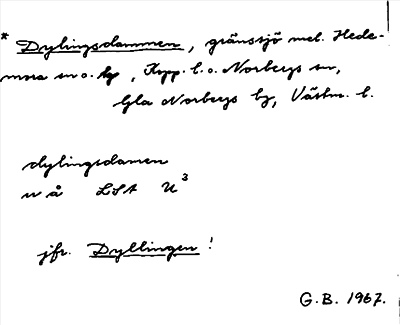 * Dylingsdammen, gränssjö mel. Hede-
mora sn o. kp, Kopp. l. o. Norbergs sn,
Gla Norbergs bg, Västm. l.
dylingsdamen
u å LSA U3
jfr. Dyllingen!
G.B. 1967.